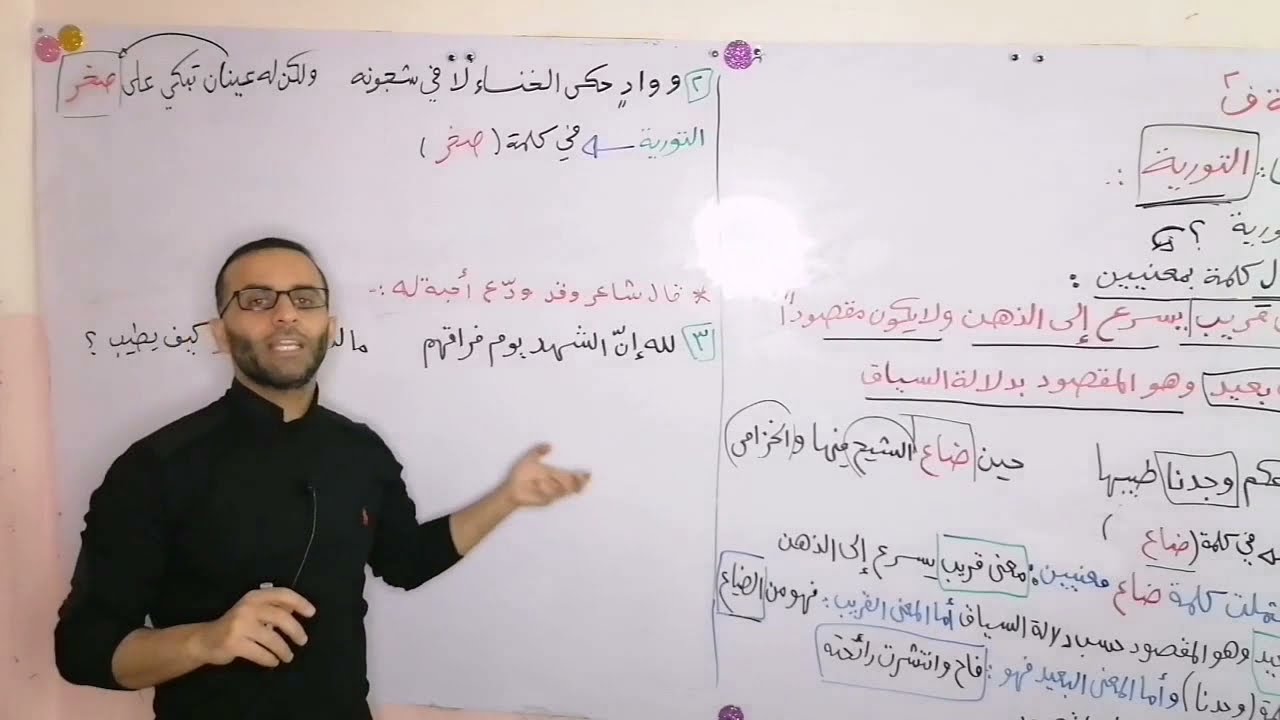 ة ف٢
التورية :
ورية ؟
ل كلمة بمعنيين :
قريب يسرع إلى الذهن ولا يكون مقصوداً
بعيد وهو المقصود بدلالة السياق
عكم وجدنا طيبها حين ضاع الشيح فيها والخزامى
في كلمة (ضاع)
تملت كلمة ضاع معنيين: معنى قريب يسرع إلى الذهن
يد وهو المقصود حسب دلالة السياق أما المعنى القريب: فهو من الضياع
ة (وجدنا) وأما المعنى البعيد فهو: فاح وانتشرت رائحته
٢ ووادٍ حكى الخنساء لا في شجونه ولكن له عينان تبكي على صخر
التورية في كلمة (صخر)
* قال شاعر وقد ودّع أحبة له :-
٣ لله إنّ الشهد يوم فراقهم مالذ كيف يطيب ؟